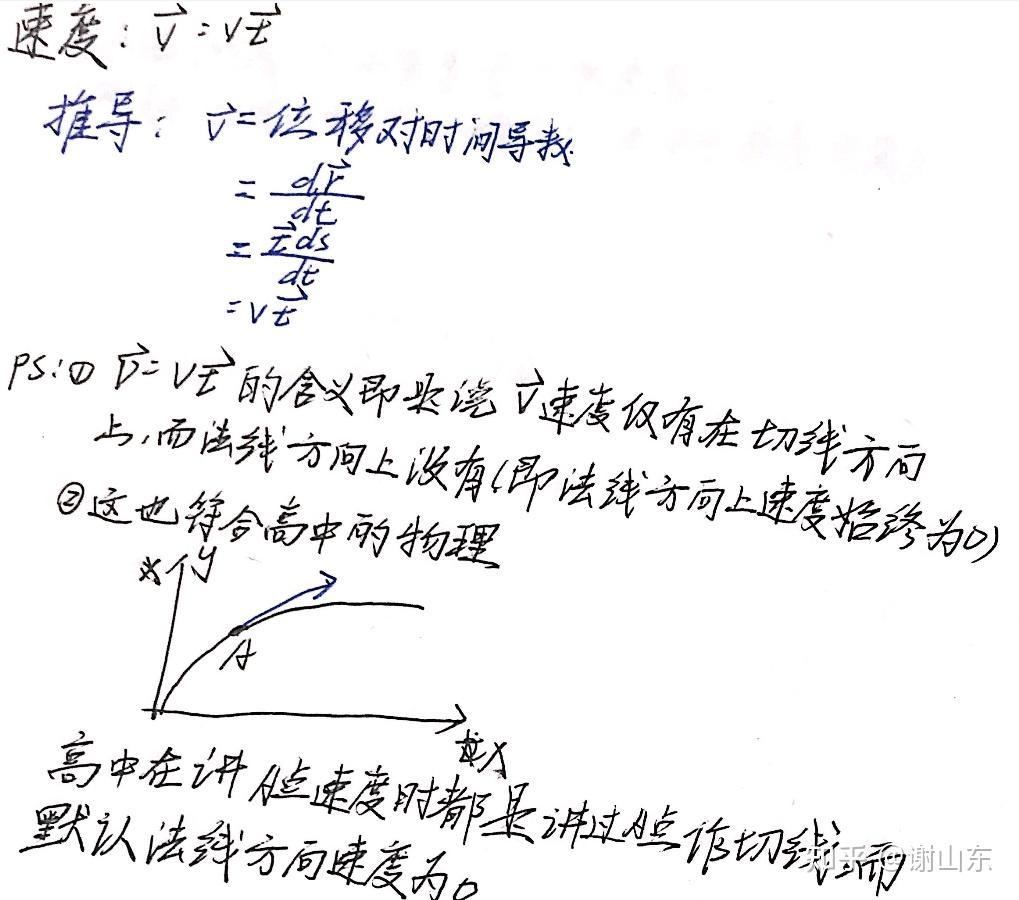 速度：v⃗=vt⃗
推导：v⃗=位移对时间导数
=dr⃗/dt
=t⃗ds/dt
=vt⃗
PS:① v⃗=vt⃗的含义即是说v⃗速度仅有在切线方向
上，而法线方向上没有(即法线方向上速度始终为0)
②这也符合高中的物理
y
A
x
高中在讲A点速度时都是讲过A点作切线，而
默认法线方向速度为0
知乎 @谢山东